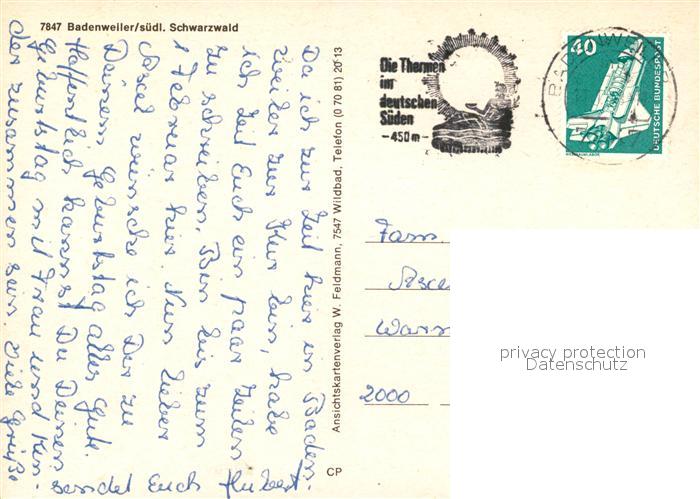 7847 Badenweiler/südl. Schwarzwald
Da ich zur Zeit hier in Baden-
weiler zur Kur bin, habe
ich Zeit Euch ein paar Zeilen
zu schreiben. Bin bis zum
1 Februar hier. Nun lieber
Axel wünsche ich Dir zu
Deinem Geburtstag alles Gute.
Hoffentlich kannst Du Deinen
Geburtstag mit Frau und Kin-
der zusammen sein Viele Grüße
sendet Euch Hubert.
Ansichtskartenverlag W. Feldmann, 7547 Wildbad, Telefon (0 70 81) 20 13
CP
Die Thermen
im
deutschen
Süden
-450 m-
40
DEUTSCHE BUNDESPOST
Fam.
2000
privacy protection
Datenschutz